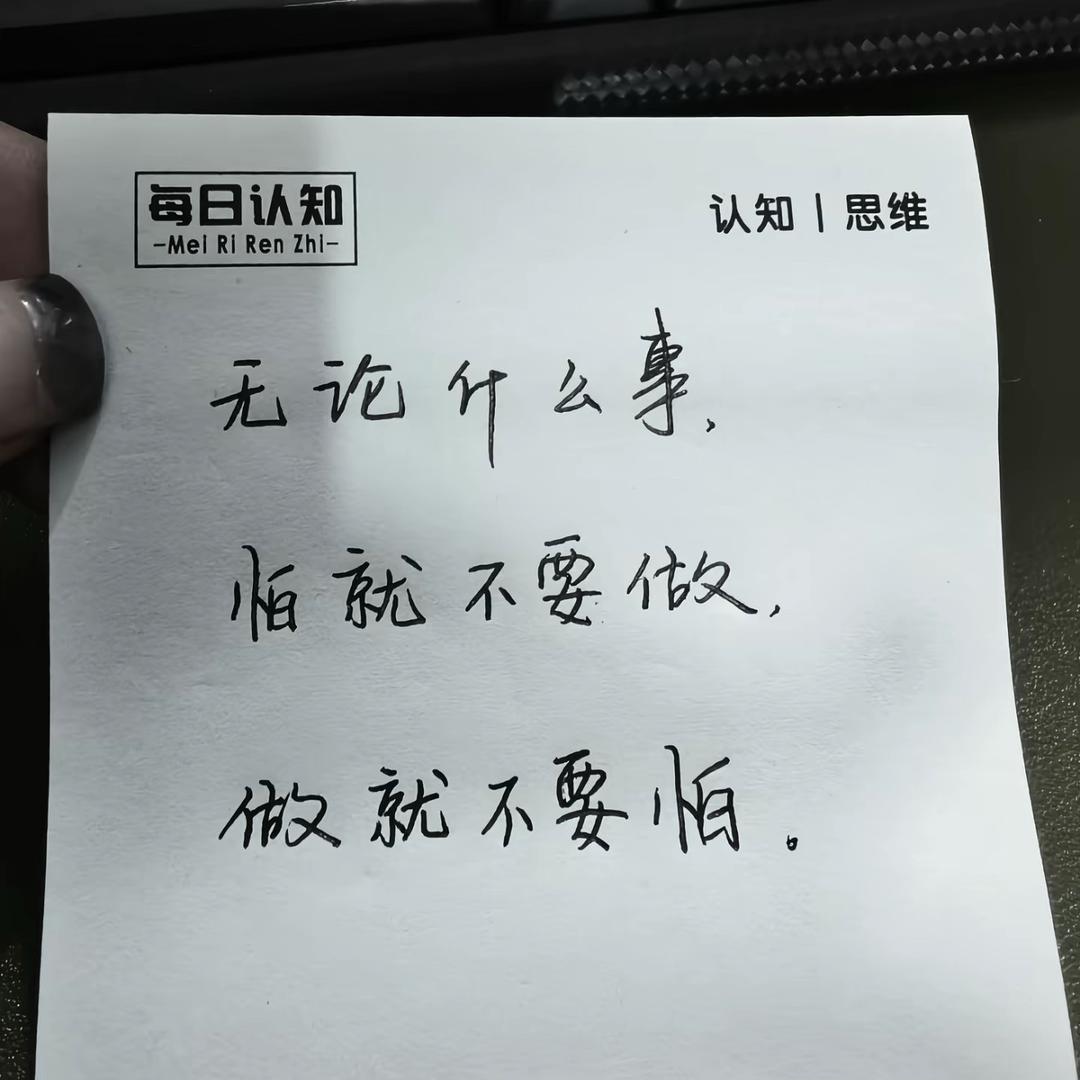 每日认知
-Mei Ri Ren Zhi-
认知 | 思维
无论什么事,
怕就不要做,
做就不要怕。